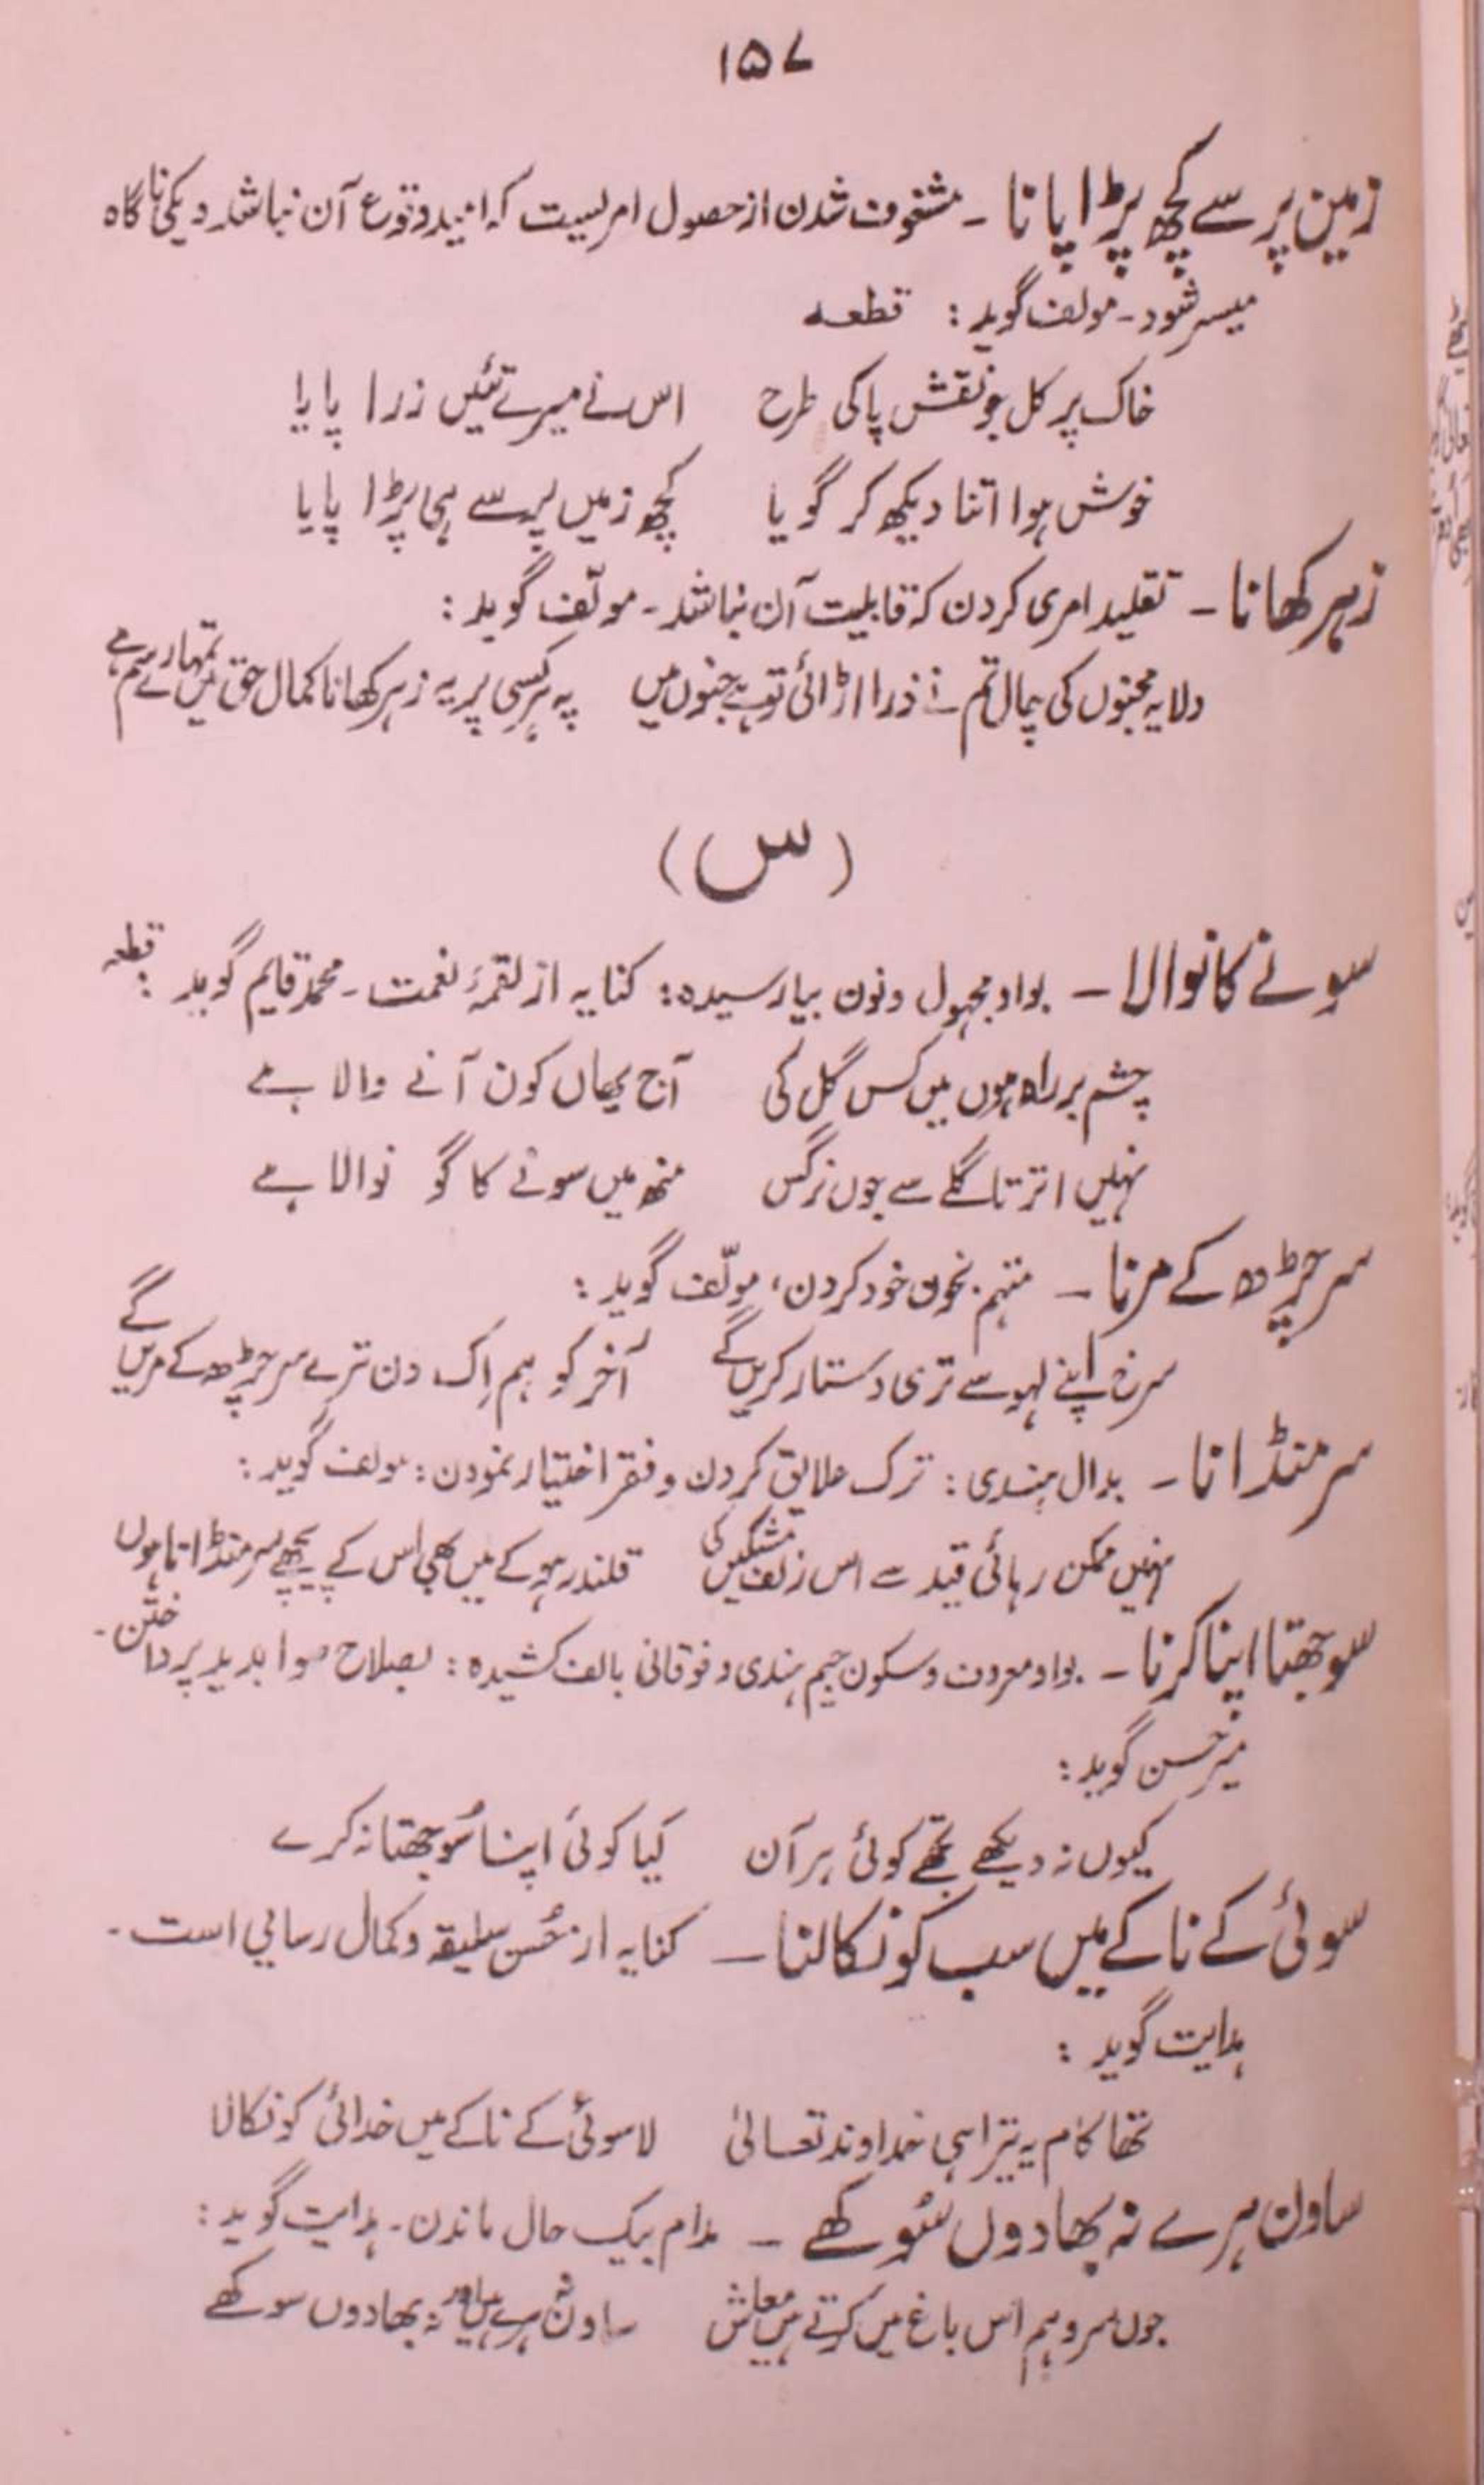 ۱۵۷
زمین پر سے کچھ پڑا پانا ۔ مشغوف شدن از حصول امریست کہ امید وقوع آن نباشد و یکی ناگاہ
میسر شود ۔ مولف گوید : قطعہ
خاک پر کل جو نقش پا کی طرح اس نے میرے تئیں ذرا پایا
خوش ہوا اتنا دیکھ کر گویا کچھ زمیں پر سے ہی پڑا پایا
زہر کھانا ۔ تقلید امری کردن کہ قابلیت آن نباشد ۔ مولّف گوید :
دلا یہ مجنوں کی چال تم نے ذرا اڑائی تو ہے جنوں میں پہ ہر کسی پر یہ زہر کھانا کمال حق میں تمہارے سم ہے
(س)
سونے کا نوالا ۔ بواو مجہول و نون بیا رسیدہ : کنایہ از لقمۂ نعمت ۔ محمد قایم گوید : قطعہ
چشم بر راہ ہوں میں کس گل کی آج یھاں کون آنے والا ہے
نہیں اترتا گلے سے جوں نرگس منھ میں سونے کا گو نوالا ہے
سر چڑھ کے مرنا ۔ متہم بخون خود کردن، مولّف گوید :
سرخ اپنے لہو سے تری دستار کریں گے آخر کو ہم اِک دن ترے سر چڑھ کے مریں گے
سر منڈانا ۔ بدال ہندی : ترک علایق کردن و فقر اختیار نمودن : مولف گوید :
نہیں ممکن رہائی قید سے اس زلف مشکیں کی قلندر ہو کے میں بھی اُس کے پیچھے سر منڈاتا ہوں
سوجھتا اپنا کرنا ۔ بواو معروف و سکون جیم ہندی و فوقانی بالف کشیدہ : بصلاح صوابدید پرداختن ۔
میر حسن گوید :
کیوں نہ دیکھے تجھے کوئی ہر آن کیا کوئی اپنا سُوجھتا نہ کرے
سوئی کے ناکے میں سب کو نکالنا ۔ کنایہ از حُسن سلیقہ و کمال رسایی است ۔
ہدایت گوید :
تھا کام یہ تیرا ہی خداوند تعالیٰ لا سوئی کے ناکے میں خدائی کو نکالا
ساون ہرے نہ بھادوں سُوکھے ۔ مدام بیک حال ماندن ۔ ہدایت گوید :
جوں سرو ہم اس باغ میں کرتے ہیں معاش ساون نہ ہرے ہیں اور نہ بھادوں سوکھے